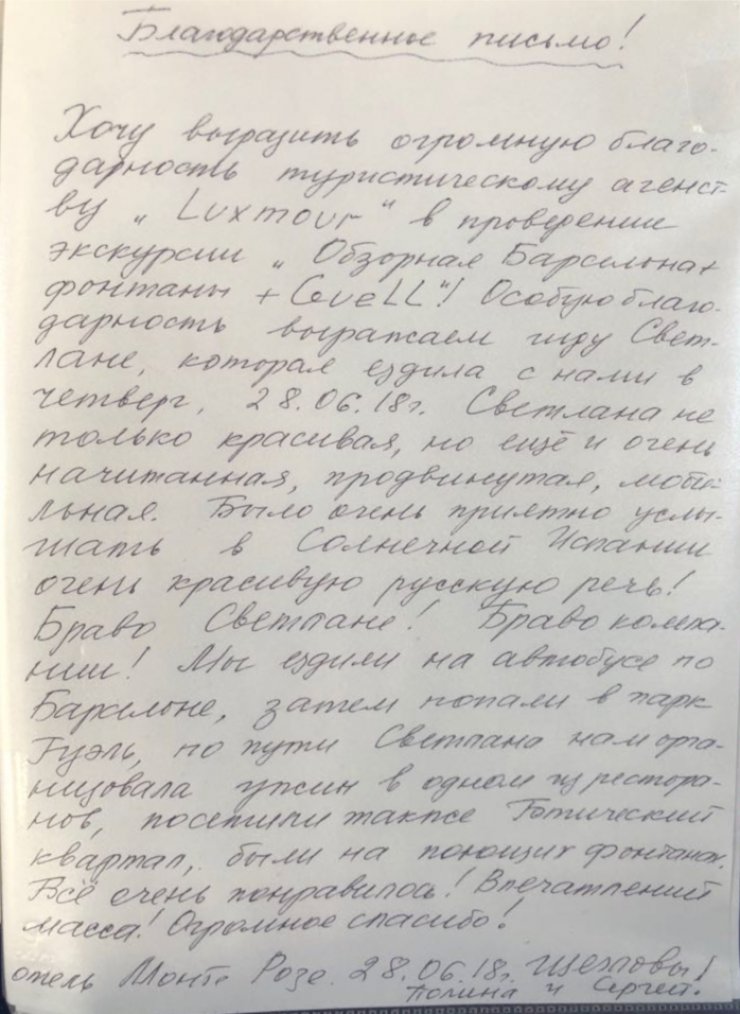 Благодарственное письмо!
Хочу выразить огромную благо-
дарность туристическому агенст-
ву „Luxmour“ в проведении
экскурсии „Обзорная Барселона+
фонтаны + Güell“! Особую благо-
дарность выражаем гиду Свет-
лане, которая ездила с нами в
четверг, 28.06.18г. Светлана не
только красивая, но ещё и очень
начитанная, продвинутая, моби-
льная. Было очень приятно услы-
шать в Солнечной Испании
очень красивую русскую речь!
Браво Светлане! Браво компа-
нии! Мы ездили на автобусе по
Барселоне, затем попали в парк
Гуэль, по пути Светлана нам орга-
низовала ужин в одном из рестора-
нов, посетили также Готический
квартал, были на поющих фонтанах.
Всё очень понравилось! Впечатлений
масса! Огромное спасибо!
отель Монте Розе. 28.06.18г. Щегловы!
Полина и Сергей.